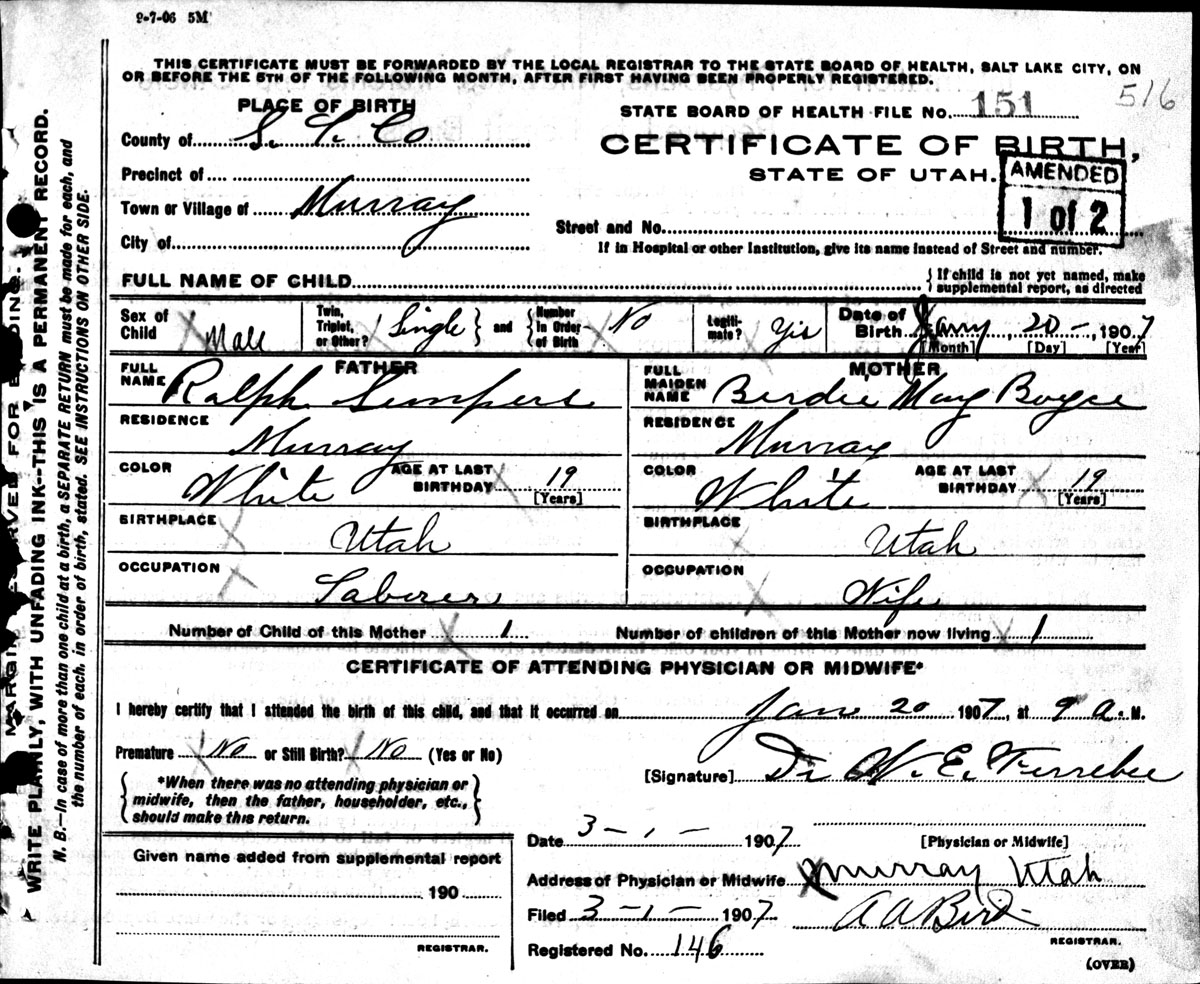 9-7-06 5M
THIS CERTIFICATE MUST BE FORWARDED BY THE LOCAL REGISTRAR TO THE STATE BOARD OF HEALTH, SALT LAKE CITY, ON
OR BEFORE THE 5TH OF THE FOLLOWING MONTH, AFTER FIRST HAVING BEEN PROPERLY REGISTERED.
516
PLACE OF BIRTH
STATE BOARD OF HEALTH FILE No. 151
County of S. L. Co
CERTIFICATE OF BIRTH,
Precinct of
STATE OF UTAH.
AMENDED
1 of 2
Town or Village of Murray
Street and No.
City of
If in Hospital or other Institution, give its name instead of Street and number.
FULL NAME OF CHILD
{ If child is not yet named, make
supplemental report, as directed
Sex of Child Male
Twin, Triplet, or Other? Single } and { Number in Order of Birth No
Legitimate? Yis
Date of Birth Jany 20 - 1907
[Month] [Day] [Year]
FATHER
MOTHER
FULL NAME Ralph Sempers
FULL MAIDEN NAME Berdie May Boyce
RESIDENCE Murray
RESIDENCE Murray
COLOR White AGE AT LAST BIRTHDAY 19 [Years]
COLOR White AGE AT LAST BIRTHDAY 19 [Years]
BIRTHPLACE Utah
BIRTHPLACE Utah
OCCUPATION Laborer
OCCUPATION Wife
Number of Child of this Mother 1 Number of children of this Mother now living 1
CERTIFICATE OF ATTENDING PHYSICIAN OR MIDWIFE*
I hereby certify that I attended the birth of this child, and that it occurred on Jan 20 1907, at 9 a. M.
Premature No or Still Birth? No (Yes or No)
[Signature] Dr W. E. Ferrebee
{ *When there was no attending physician or
midwife, then the father, householder, etc.,
should make this return. }
Date 3-1- 1907
[Physician or Midwife]
Given name added from supplemental report
190
REGISTRAR.
Address of Physician or Midwife Murray Utah
Filed 3-1- 1907 A A Bird
REGISTRAR.
Registered No. 146
(OVER)
WRITE PLAINLY, WITH UNFADING INK--THIS IS A PERMANENT RECORD.
N. B.—In case of more than one child at a birth, a SEPARATE RETURN must be made for each, and
the number of each, in order of birth, stated. SEE INSTRUCTIONS ON OTHER SIDE.